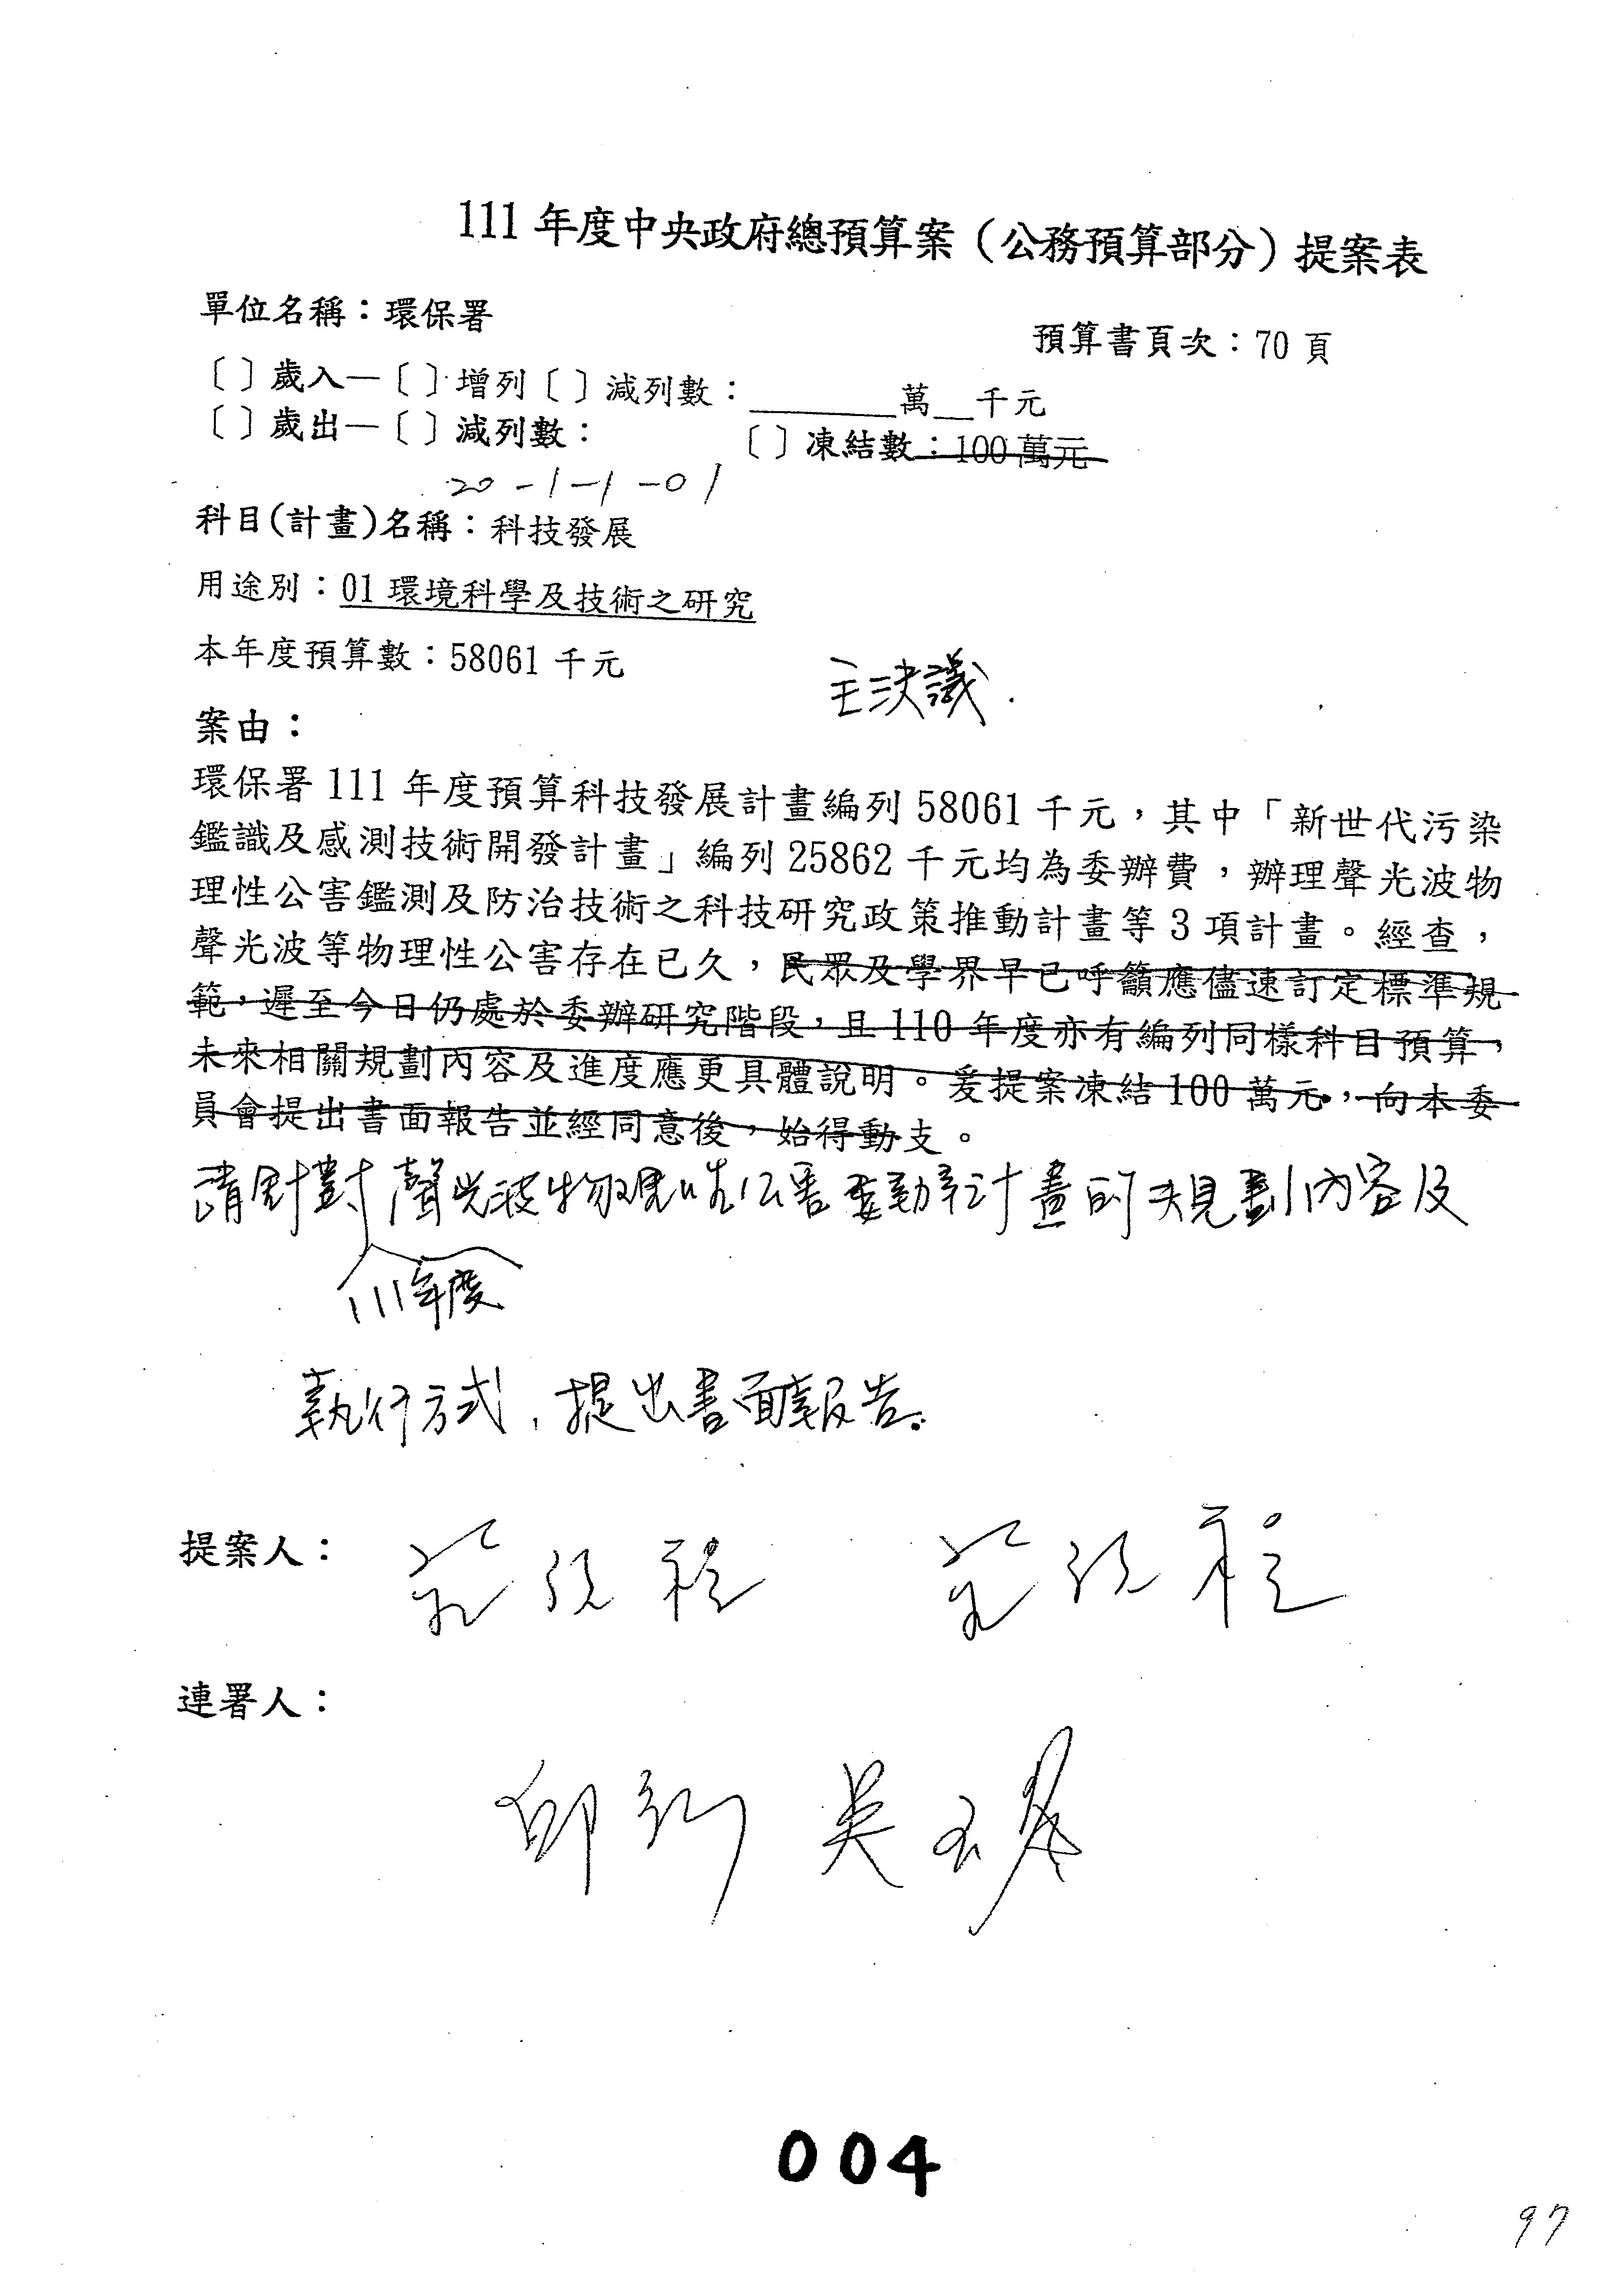 111 年度中央政府總預算案（公務預算部分）提案表
單位名稱：環保署
預算書頁次：70 頁
〔 〕歲入—〔 〕增列〔 〕減列數：________萬__千元
〔 〕歲出—〔 〕減列數： 〔 〕凍結數：100 萬元
20-1-1-01
科目(計畫)名稱：科技發展
用途別：01 環境科學及技術之研究
本年度預算數：58061 千元
主決議.
案由：
環保署 111 年度預算科技發展計畫編列 58061 千元，其中「新世代污染
鑑識及感測技術開發計畫」編列 25862 千元均為委辦費，辦理聲光波物
理性公害鑑測及防治技術之科技研究政策推動計畫等 3 項計畫。經查，
聲光波等物理性公害存在已久，民眾及學界早已呼籲應儘速訂定標準規
範，遲至今日仍處於委辦研究階段，且 110 年度亦有編列同樣科目預算，
未來相關規劃內容及進度應更具體說明。爰提案凍結 100 萬元，向本委
員會提出書面報告並經同意後，始得動支。
請針對聲光波物理性公害委辦計畫的規劃內容及
111年度
執行方式，提出書面報告。
提案人：
連署人：
004
97